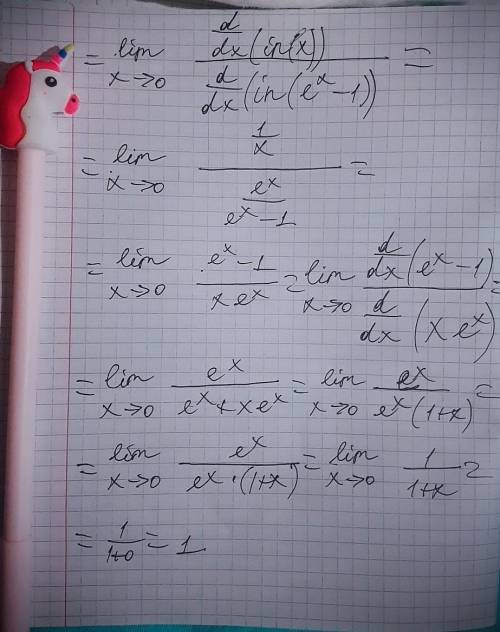 = lim x→0 d/dx (in(x)) / d/dx (in(eˣ-1)) =
= lim x→0 1/x / eˣ/(eˣ-1) =
= lim x→0 (eˣ-1)/(xeˣ) = lim x→0 d/dx (eˣ-1) / d/dx (xeˣ) =
= lim x→0 eˣ/(eˣ+xeˣ) = lim x→0 eˣ/(eˣ(1+x)) =
= lim x→0 eˣ/(eˣ·(1+x)) = lim x→0 1/(1+x) =
= 1/(1+0) = 1